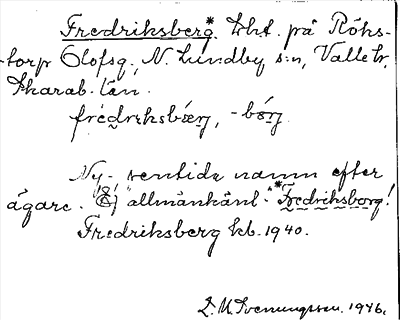 Fredriksberg* Lht. på Röhs-
torp Olofsg. N. Lundby s:n, Valle hd,
Skarab. län.
fredriksbærj, -bórj
Ny- sentida namn efter
ägare. allmänkänt "*Fredriksborg!
Fredriksberg kb. 1940.
1946.